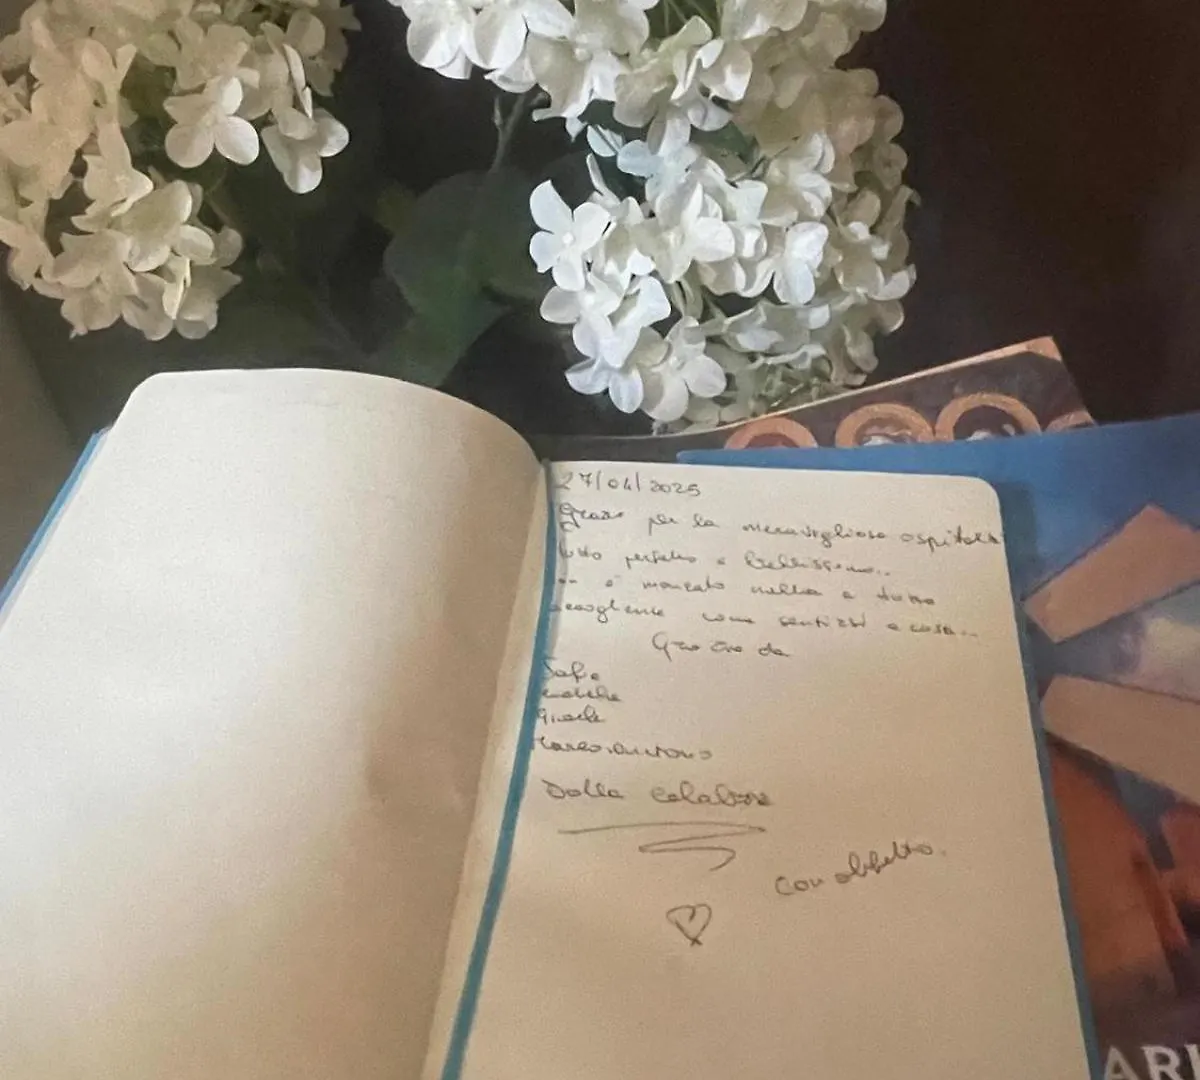 27/04/2025
Grazie per la meravigliosa ospitalità
tutto perfetto e bellissimo..
è mancato nulla e tutto
accogliente come sentirsi a casa...
Grazie da
Marco Antonio
Dalla Calabria
Con affetto.
ARI